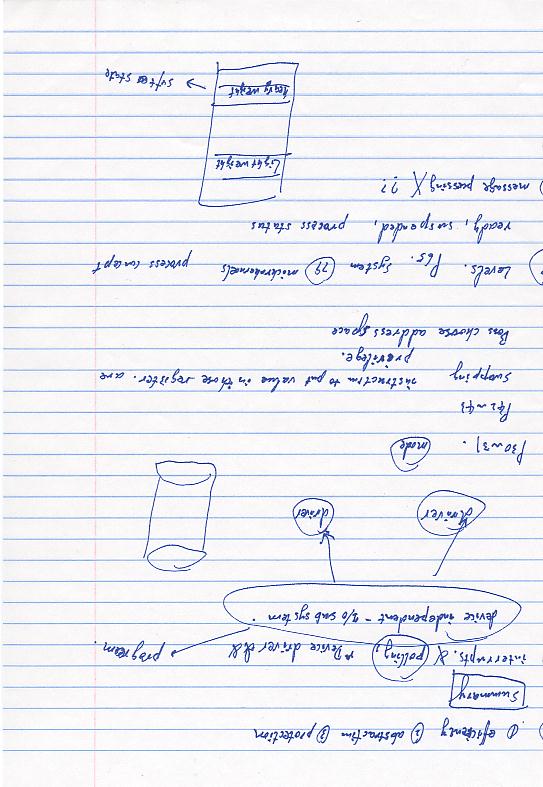 ① efficiency ② abstraction ③ protection
Summary
interrupts. & polling; Device driver program.
device independent - I/O sub system.
driver driver
P30~31. mode
P42~43
Swapping instruction to put value in those register. are
privilege.
choose address space
Levels. P65. System ?? microkernels process concept
ready, suspended, process status
message passing X ??
Light weight
Heavy weight
state